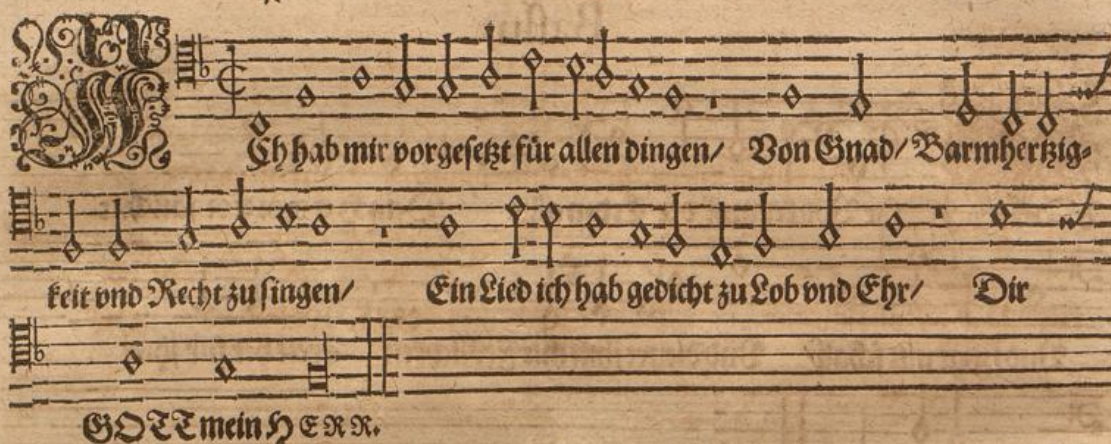 ICh hab mir vorgesetzt für allen dingen/ Von Gnad/ Barmhertzig-
keit vnd Recht zu singen/ Ein Lied ich hab gedicht zu Lob vnd Ehr/ Dir
GOTT mein HERR.